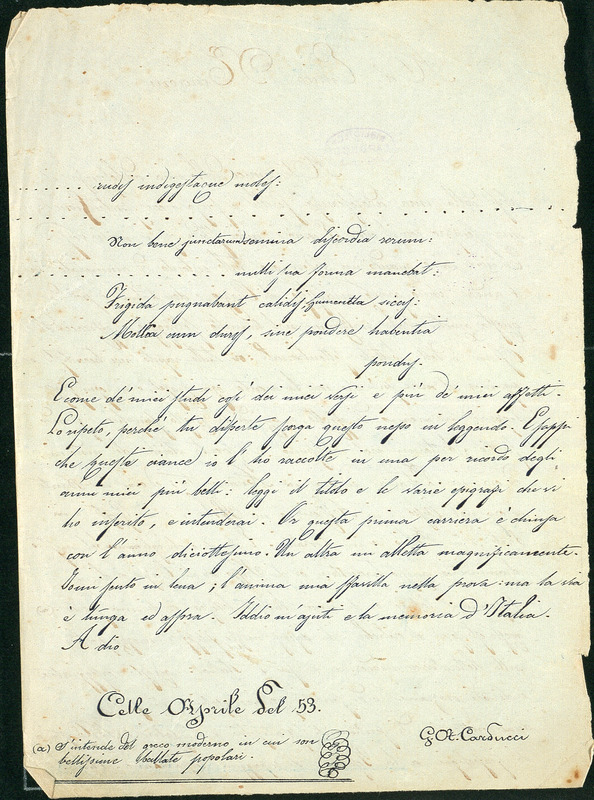 ..... rudis indigestaque moles:
Non bene junctarum semina discordia rerum:
..... nulli sua forma manebat:
Frigida pugnabant calidis, humentia siccis:
Mollia cum duris, sine pondere habentia
pondus.
E come de' miei studi così dei miei versi e più de' miei affetti.
Lo ripeto, perchè tu disperte forza questo nesso in leggendo. E sappi
che queste ciance io l' ho raccolte in una per ricordo degli
anni miei più belli: leggi il titolo e le varie epigrafi che vi
ho inserito, e intenderai. Or questa prima carriera è chiusa
con l'anno diciottesimo. Un altra mi alletta magnificamente.
Io mi sento in lena; l'anima mia sfavilla nella prova: ma la via
è lunga ed aspra. Iddio m'ajuti e la memoria d'Italia.
A dio
Celle Aprile del 53.
G. A. Carducci
(a) S'intende del greco moderno in cui son
bellissime ballate popolari.